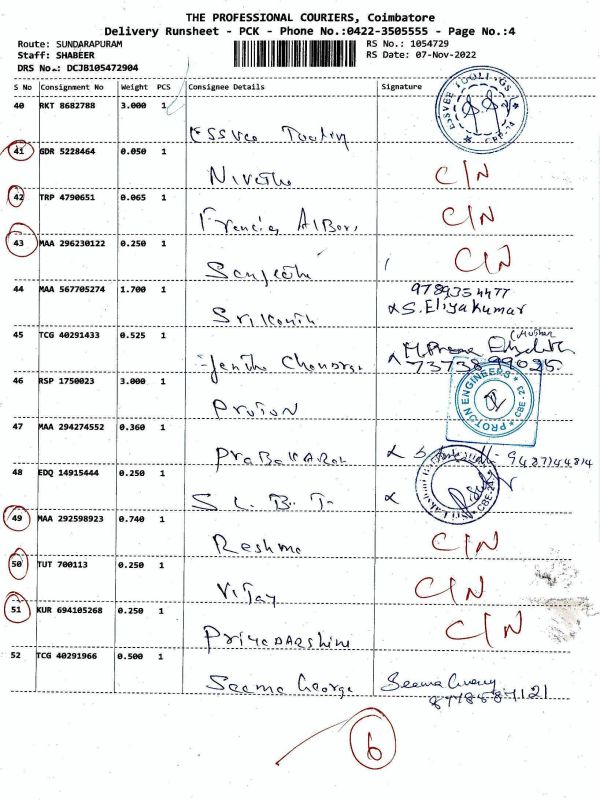 THE PROFESSIONAL COURIERS, Coimbatore
Delivery Runsheet - PCK - Phone No.:0422-3505555 - Page No.:4
Route: SUNDARAPURAM RS No.: 1054729
Staff: SHABEER RS Date: 07-Nov-2022
DRS No.: DCJB105472904
S No Consignment No Weight PCS Consignee Details Signature
40 RKT 8682788 3.000 1
ESSVEE TOOLINGS CBE-24
Essvee Toolin
41 GDR 5228464 0.050 1
Nivetha C/N
42 TRP 4790651 0.065 1
Francies Albor C/N
43 MAA 296230122 0.250 1
Sangeetha C/N
44 MAA 567705274 1.700 1
9789354477
Srikanth S. Eliyakumar
45 TCG 40291433 0.525 1
(Mother
M. Prema Elizabeth
Chandra
46 RSP 1750023 3.000 1
PROTON ENGINEERS CBE-23
Proton
47 MAA 294274552 0.360 1
Prabakaran
48 EDQ 14915444 0.250 1
S L B T
49 MAA 292598923 0.740 1
Reshma C/N
50 TUT 700113 0.250 1
Vijay C/N
51 KUR 694105268 0.250 1
Priyadarshini C/N
52 TCG 40291966 0.500 1
Seema George
6